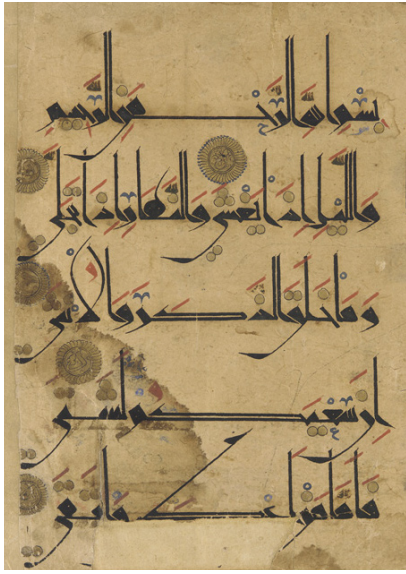 بسم الله الرحمن الرحيم
والليل إذا يغشى والنهار إذا تجلى
وما خلق الذكر والأنثى
إن سعيكم لشتى
فأما من أعطى واتقى